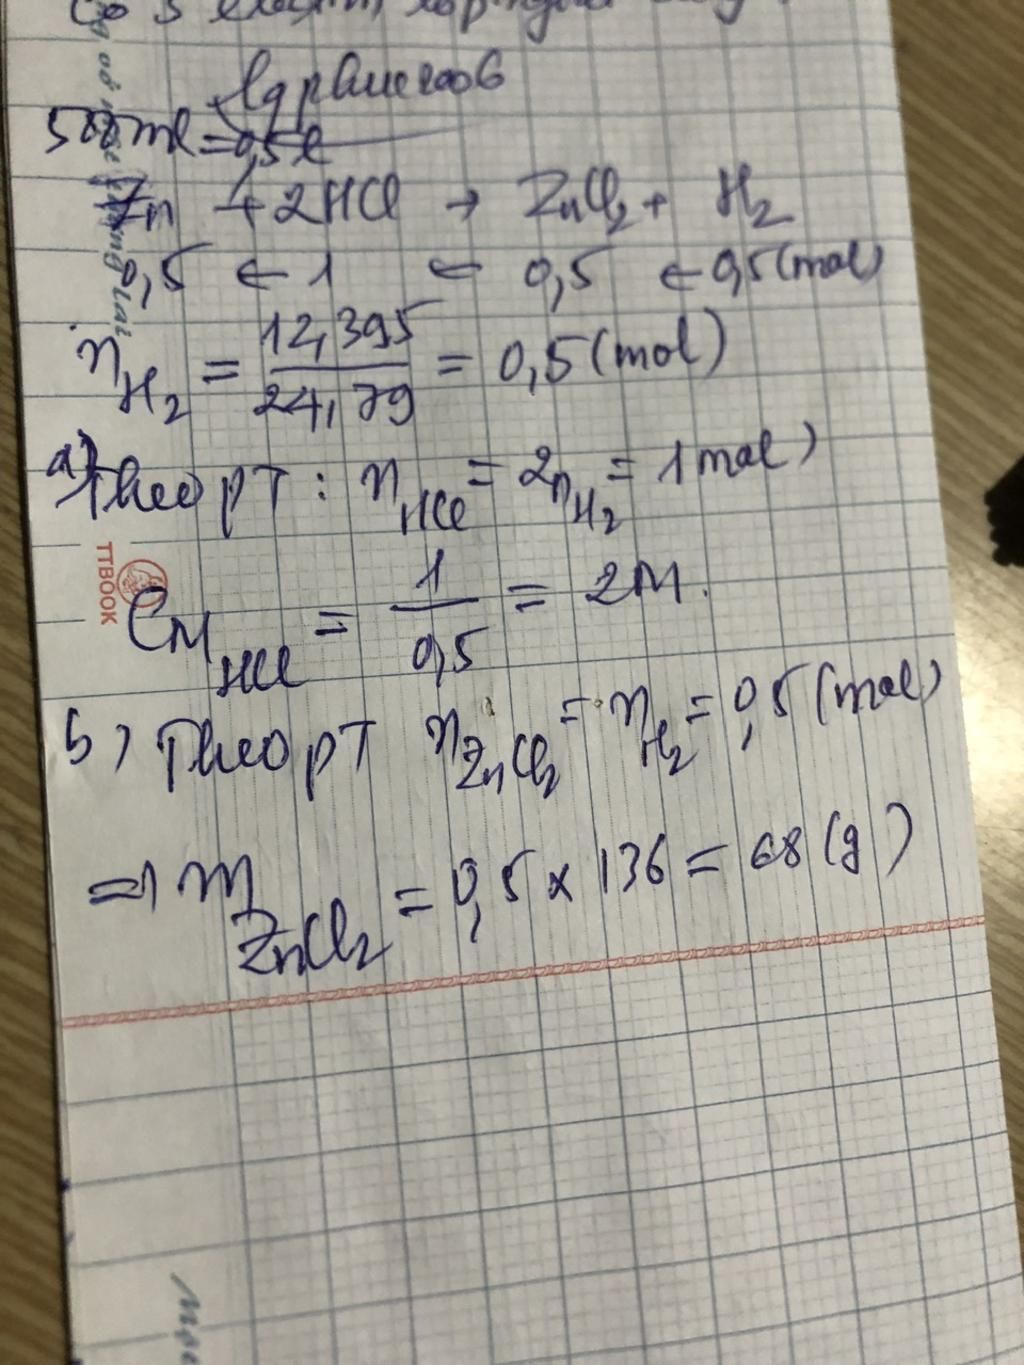 500ml = 0,5l
Zn + 2HCl → ZnCl₂ + H₂
0,5 ← 1 ← 0,5 ← 0,5 (mol)
n_H₂ = 12,395 / 24,79 = 0,5 (mol)
a) Theo PT : n_HCl = 2n_H₂ = 1 mol)
TTBOOK
CM_HCl = 1 / 0,5 = 2M.
b) Theo PT n_ZnCl₂ = n_H₂ = 0,5 (mol)
=) m_ZnCl₂ = 0,5 x 136 = 68 (g)